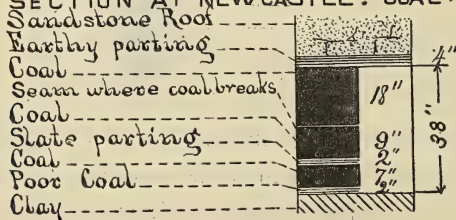 SECTION AT NEWCASTLE. COAL
Sandstone Roof
Earthy parting
Coal
Seam where coal breaks
Coal
Slate parting
Coal
Poor Coal
Clay
18"
9"
2"
7"
2"
38"